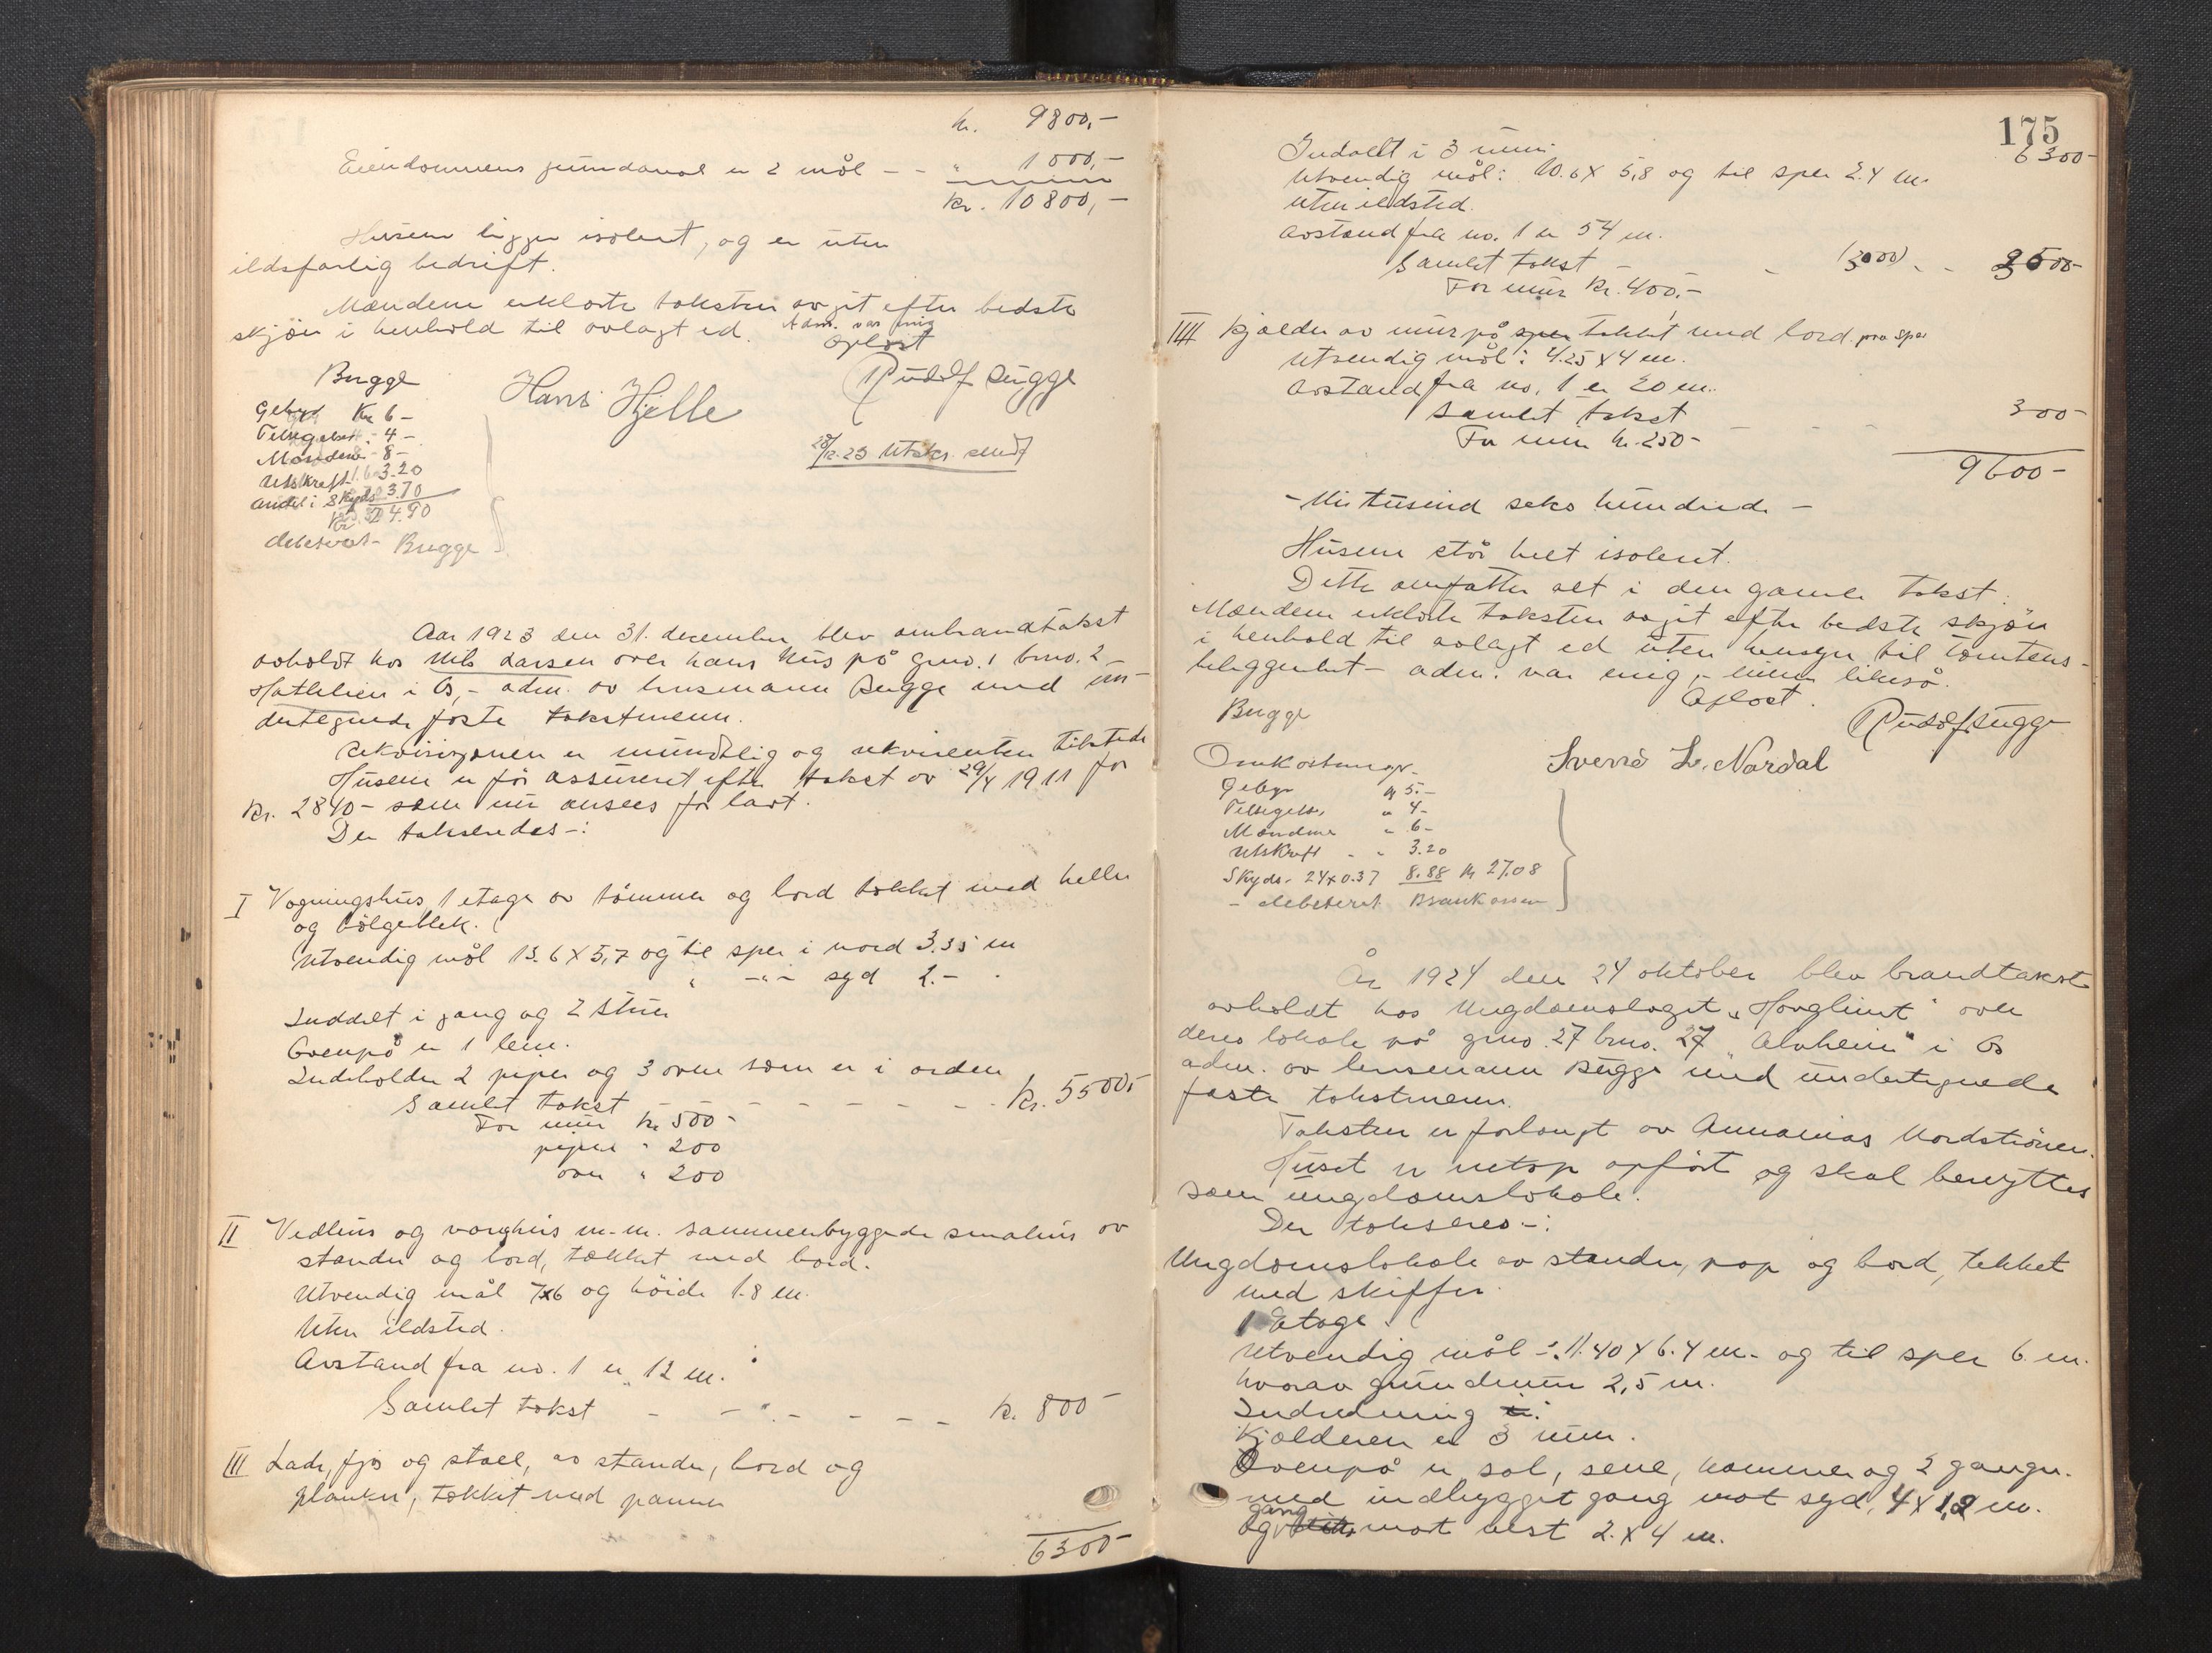 kr. 9800,-
Eiendommens jundareal er 2 mål - - " 1000,-
kr. 10800,-
Husene ligger isolert, og er uten
ildsfarlig bedrift.
Mændene erklærte taksten avgit efter bedste
skjøn i henhold til avlagt ed. Adm. var enig
Oplæst
Bugge Hans Hjelle Rudolf Bugge
Gebyr Kr 6-
Tilsigelse " 4-
Mændene - 8-
Utskrift 1.6 3.20
Andel i Skyds 3.70
Kr. 24.90
debeteret - Bugge
28/12.23 Utskr. sendt
Aar 1923 den 31. december blev ombrandtakst
avholdt hos Nils Larsen over hans hus på gno. 1 bno. 2
Hatlelien i Os, - adm. av lensmann Bugge med un-
dertegnede faste takstmenn.
Rekvisisjonen er mundtlig og rekvirenten tilstede
Husene er før assureret efter takst av 29/4 1911 for
kr. 2840- som nu ansees for lavt.
Der takseredes -:
I Vogningshus 1 etage av tømmer og bord tækket med heller
og bølgeblek.
Utvendig mål 13.6 x 5,7 og til sper i nord 3.35 m
" -"- syd 2.- .
Inddelt i gang og 2 stuer
Ovenpå er 1 lem.
Indeholder 2 piper og 3 ovne som er i orden
Samlet takst - - - - - - - kr. 5500,-
For mur kr 500-
piper " 200
ovn " 200
II Vedhus og vorghus m.m. sammenbyggede smahus av
stander og bord, tækket med bord.
Utvendig mål 7x6 og høide 1.8 m.
Uten ildsted.
Avstand fra no. 1 er 12 m.
Samlet takst - - - - - - kr. 800-
III Lade, fjøs og stall, av stander, bord og
planker, tækket med panner
6300-
175
6300-
Inddelt i 3 rum.
Utvendig mål: 10.6 x 5,8 og til sper 2.4 m.
uten ildsted.
Avstand fra no. 1 er 54 m.
Samlet takst - - (3000) - - 3500-
For mur kr. 400,-
IIII Kjælder av mur på sper tækket med bord. paa sper
Utvendig mål: 4.25 x 4 m.
Avstand fra no. 1 er 20 m.
Samlet takst - - - - 300-
For mur kr. 250-
9600-
- Nitusind seks hundrede -
Husene står helt isoleret.
Dette omfatter alt i den gamle takst.
Mændene erklærte taksten avgit efter bedste skjøn
i henhold til avlagt ed uten hensyn til tomtens
beliggenhet - adm. var enig, - likeså.
Oplæst.
Bugge Rudolf Bugge
Sverre L. Nordal
Omkostninger
Gebyr kr 5.-
Tilsigelse " 4-
Mændene " 6-
Utskrift - " 3.20
Skyds - 24x0.37 8.88 kr 27.08
- debeteret Brankassen
År 1924 den 24 oktober blev brandtakst
avholdt hos Ungdomslaget "Hovglimt" over
deres lokale på gno. 27 bno. 27 "Alvheim" i Os
adm. av lensmann Bugge med undertegnede
faste takstmenn.
Taksten er forlangt av Annanias Nordstrønen.
Huset er netop opført og skal benyttes
som ungdomslokale.
Der takseres -:
Ungdomslokale av stander, pap og bord, tekket
med skiffer.
1 Etage.
Utvendig mål -: 11.40 x 6.4 m. og til sper 6 m.
hvorav grundmur 2,5 m.
Indredning :
Kjælderen er 3 rum.
Ovenpå er sal, sene, kammer og 2 ganger.
med indbygget gang mot syd, 4 x 1,2 m.
og gang mot vest 2. x 4 m.